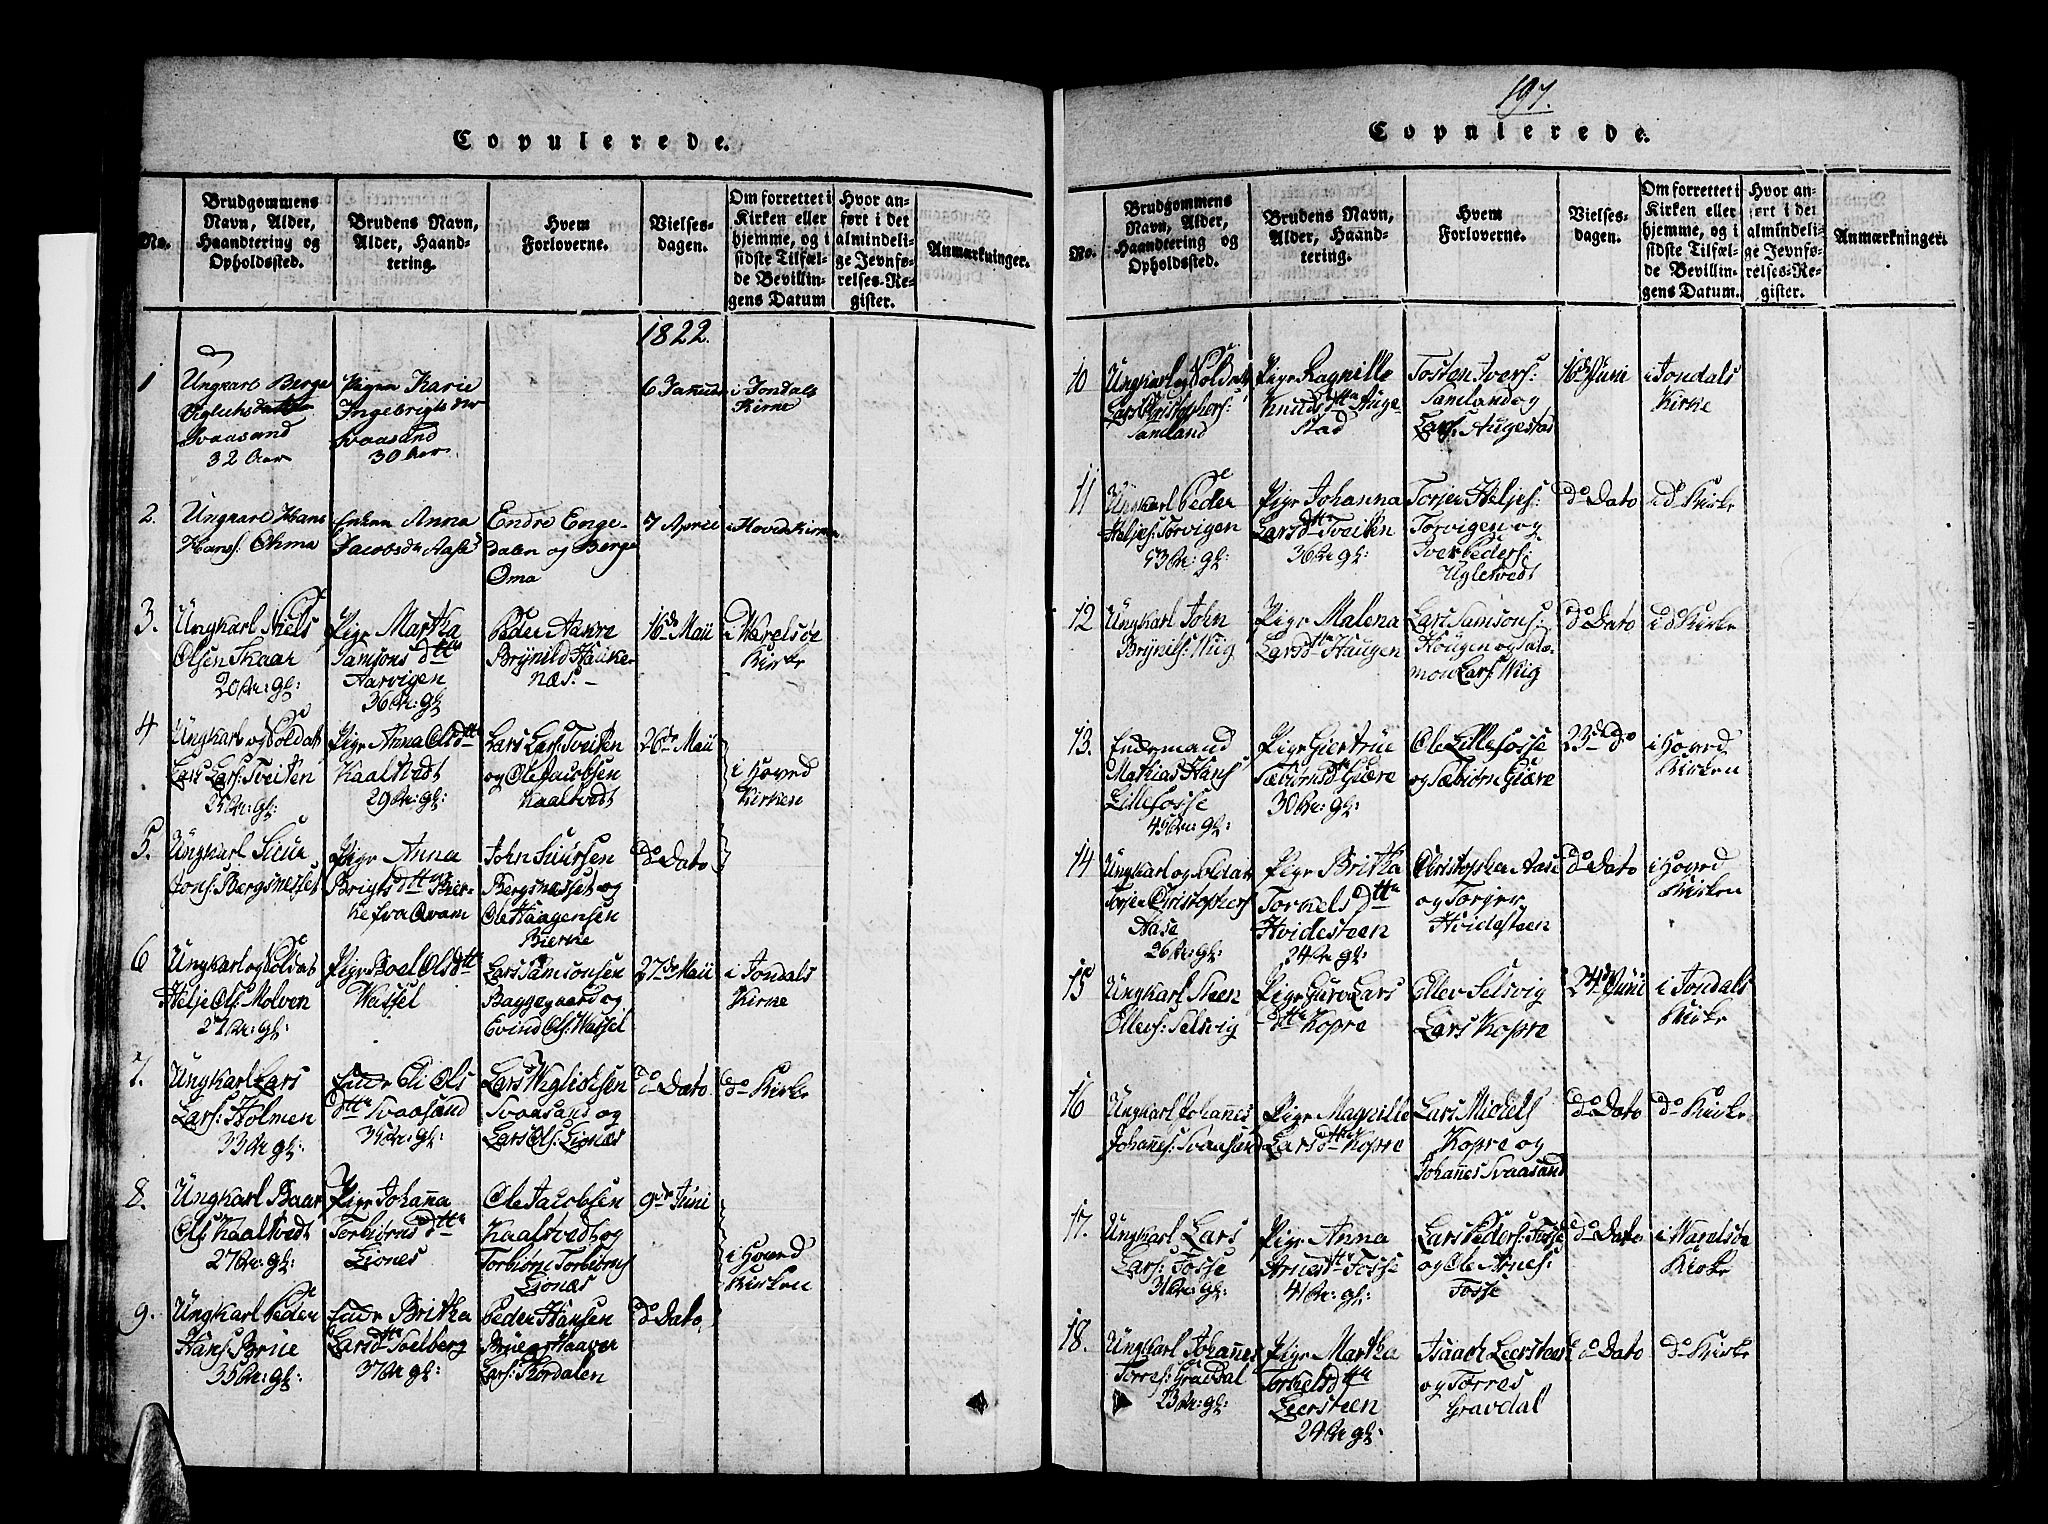 Copulerede.
No.
Brudgommens
Navn, Alder,
Haandtering og
Opholdssted.
Brudens Navn,
Alder, Haand-
tering.
Hvem
Forloverne.
Vielses-
dagen.
Om forrettet i
Kirken eller
hjemme, og i
sidste Tilfæl-
de Bevillin-
gens Datum
Hvor an-
ført i det
almindeli-
ge Jevnfø-
relses-Re-
gister.
Anmærkninger.
1822.
1
Ungkarl Berge
Svaasand
32 Aar
Pigen Karie
Ingebrigtsdtr
Svaasand
30 Aar
6 Januar
i Jondals
Kirke
2.
Ungkarl Hans
Hans: Ohma
Enken Anna
Jacobsdr
Endre Enge-
dalen og Berge
Oma
7 April
i Hoved Kirken
3.
Ungkarl Niels
Olsen Skaar
20 Ar: gl:
Pige Martha
Samsons dttr
Aarvigen
36 Ar: gl
Peder Aakre
Brynild Hauke-
næs. -
16de Maii
i Varelsøe
Kirke
4
Ungkarl og Soldat
Lars Lars: Tveiten
25 Ar: gl:
Pige Anna Olsdttr
Kaaltvedt
29 Ar: gl:
Lars Lars: Tveiten
og Ole Jacobsen
Kaaltvedt
26de Maii
i Hoved
Kirken
5.
Ungkarl Siur
Jons: Bergnesset
Pige Anna
Brigtsdttr Bier-
ke fra Qvam
John Siursen
Bergnesset og
Ole Haagensen
Bierke
do Dato
6
Ungkarl og Soldat
Helje Ols: Molven
27 Ar: gl:
Pige Boel Olsdttr
Wassel
Lars Samsonsen
Baggegaard og
Evind Ols: Wassel
27de Maii
i Jondals
Kirke
7.
Ungkarl Lars
Lars: Holmen
33 Ar gl:
Enke Oli Ols
dttr Svaasand
35 Ar: gl:
Lars Wiglichsen
Svaasand og
Lars Ols: Lionæs
do Dato
do Kirke
8.
Ungkarl Baar
Ols: Kaaltvedt
27 Ar: gl:
Pige Johanna
Torbiørns dttr
Liones
Ole Jacobsen
Kaaltvedt og
Torbiørn Torbiørns
Lionæs
9de Juni
i Hoved
Kirken
9.
Ungkarl Peder
Hans: Brue
35 Ar: gl:
Enke Britha
Larsdttr Solberg
37 Ar gl:
Peder Hansen
Brue og Haaver
Lars: Kordalen
do Dato
197.
Copulerede.
No.
Brudgommens
Navn, Alder,
Haandtering og
Opholdssted.
Brudens Navn,
Alder, Haand-
tering.
Hvem
Forloverne.
Vielses-
dagen.
Om forrettet i
Kirken eller
hjemme, og i
sidste Tilfæl-
de Bevillin-
gens Datum.
Hvor an-
ført i det
almindeli-
ge Jevnfø-
relses-Re-
gister.
Anmærkninger.
10
Ungkarl og Soldat
Lars Christophers:
Samland
Pige Ragnille
Knudsdttr Auge-
stad
Tosten Ivers:
Samland og
Lars: Augestad
16de Juni
i Jondals
Kirke
11
Ungkarl Peder
Heljes: Torvigen
Pige Johanna
Larsdttr Tveiten
36 Ar gl:
Torjer Heljes:
Torvigen og
Iver Peders:
Ugletvedt
do Dato
i do Kirke
12
Ungkarl John
Brynils: Wiig
Pige Malena
Larsdttr Haugen
Lars Samsons:
Hougen og Salo-
mon Lars: Wiig
do Dato
i do Kirke
13.
Enkemand
Mathias Hans
Lillefosse
45 Ar: gl:
Pige Giertrue
Sæbiørnsdttr Giære
30 Ar: gl:
Ole Lillefosse
og Sæbiørn Giære
23de do
i Hoved
Kirken
14
Ungkarl og Soldat
Torjer Christophers
Aase
26 Ar: gl:
Pige Britha
Torkels dttr
Hvidesteen
24 Ar gl:
Christopher Aase
og Torger
Hvidesteen
do Dato
i Hoved
Kirken
15
Ungkarl Steen
Ellevs: Selsvig
Pige Guro Lars
dttr Kopre
Ellev Selsvig
Lars Kopre
24de Junii
i Jondals
Kirke
16
Ungkarl Johanes
Johanes: Svaasand
Pige Magnille
Larsdttr Kopre
Lars Michels
Kopre og
Johanes Svaasand
do Dato
do Kirke
17.
Ungkarl Lars
Lars: Fosse
31 Ar: gl:
Pige Anna
Arnesdttr Fosse
41 Ar: gl:
Lars Peders: Fosse
og Ole Arnes:
Fosse
do Dato
i Varelsøe
Kirke
18.
Ungkarl Johanes
Torres: Gravdal
23 Ar: gl:
Pige Martha
Torkelsdttr
Leersteen
24 Ar gl:
Isaach Leersteen
og Torres
Gravdal
do Dato
do Kirke